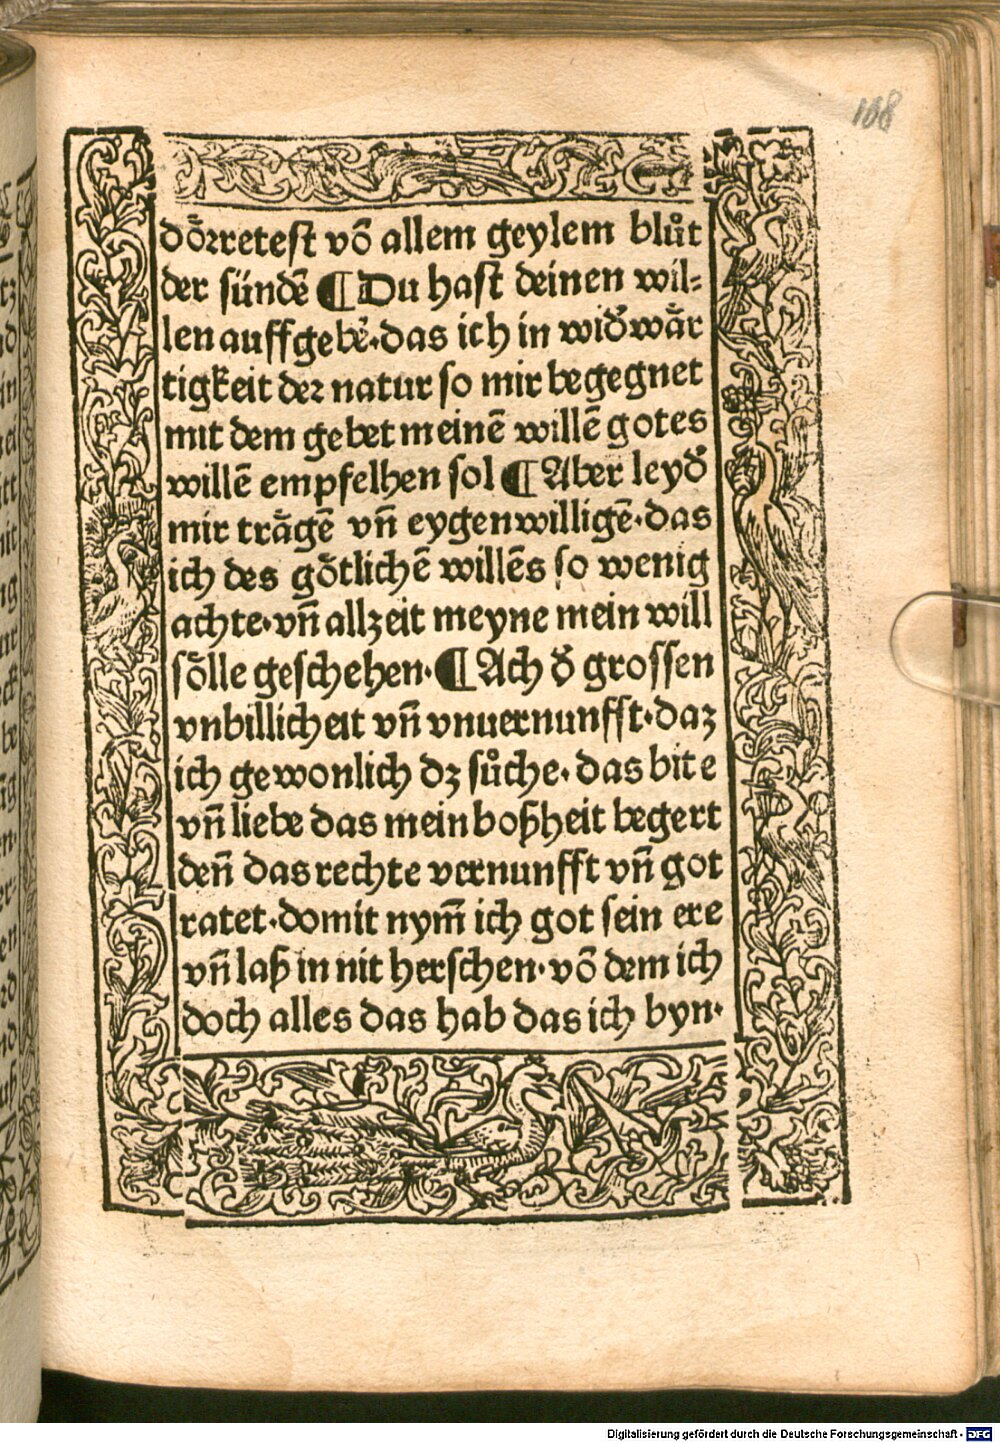 108
doͤrretest võ allem geylem bluͦt
der sündẽ ¶ Du hast deinen wil-
len auffgebẽ·das ich in widͤwaͤr
tigkeit der natur so mir begegnet
mit dem gebet meinẽ willẽ gotes
willẽ empfelhen sol ¶ Aber leydͤ
mir traͤgẽ vñ eygenwilligẽ·das
ich des goͤtlichẽ willẽs so wenig
achte·vñ allzeit meyne mein will
soͤlle geschehen· ¶ Ach dͤ grossen
vnbillicheit vñ vnuernunfft·daz
ich gewonlich dz suͦche· das bite
vñ liebe das mein boßheit begert
deñ das rechte vernunfft vñ got
ratet·domit nym̃ ich got sein ere
vñ laß in nit herschen·võ dem ich
doch alles das hab das ich byn·
Digitalisierung gefördert durch die Deutsche Forschungsgemeinschaft - DFG